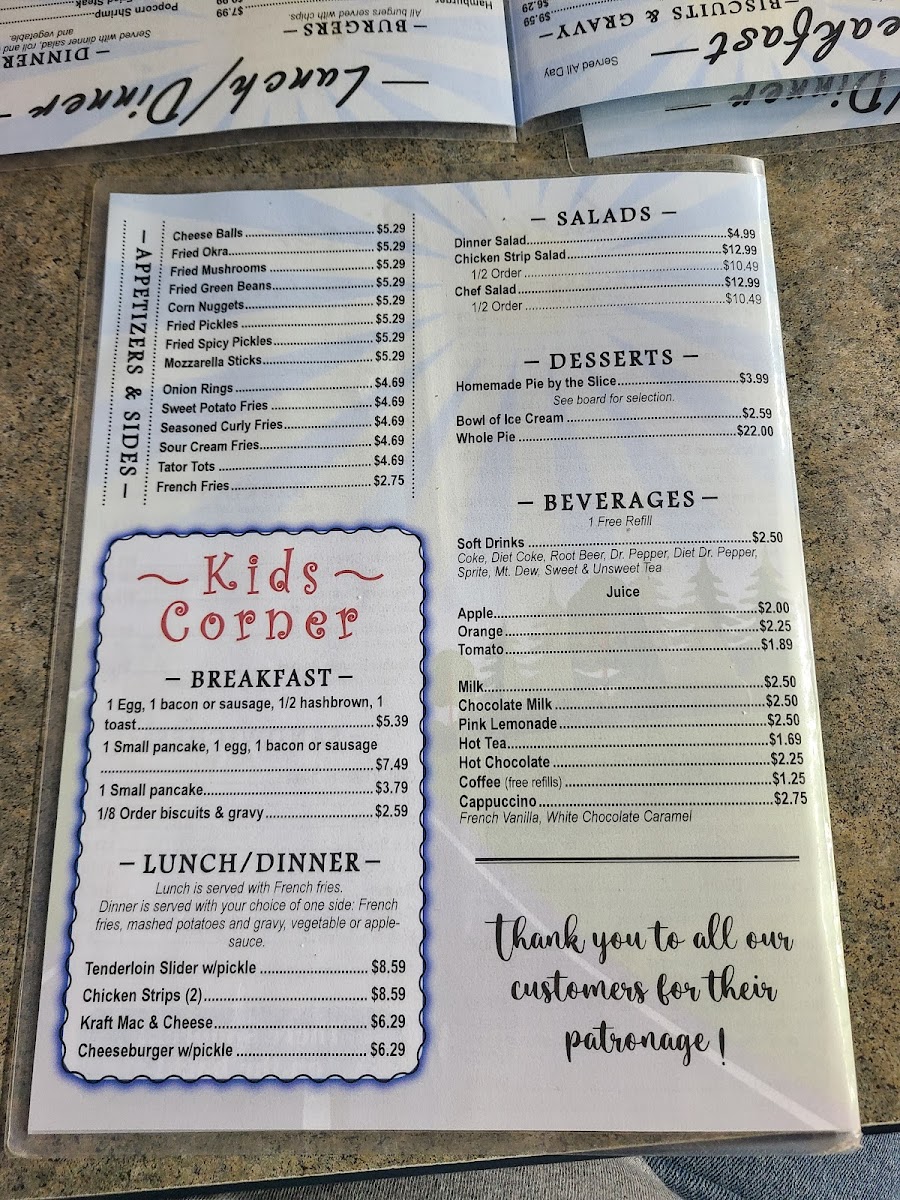 Hamburger
$7.99
All burgers served with chips.
– BURGERS –
Popcorn Shrimp
Served with dinner salad, roll and
and vegetable.
– DINNER
– Lunch/Dinner –
$6.29
$9.59
– BISCUITS & GRAVY –
Served All Day
eakfast –
/Dinner –
– APPETIZERS & SIDES –
Cheese Balls $5.29
Fried Okra $5.29
Fried Mushrooms $5.29
Fried Green Beans $5.29
Corn Nuggets $5.29
Fried Pickles $5.29
Fried Spicy Pickles $5.29
Mozzarella Sticks $5.29
Onion Rings $4.69
Sweet Potato Fries $4.69
Seasoned Curly Fries $4.69
Sour Cream Fries $4.69
Tator Tots $4.69
French Fries $2.75
~ Kids ~
Corner
– BREAKFAST –
1 Egg, 1 bacon or sausage, 1/2 hashbrown, 1
toast $5.39
1 Small pancake, 1 egg, 1 bacon or sausage
$7.49
1 Small pancake $3.79
1/8 Order biscuits & gravy $2.59
– LUNCH/DINNER –
Lunch is served with French fries.
Dinner is served with your choice of one side: French
fries, mashed potatoes and gravy, vegetable or apple-
sauce.
Tenderloin Slider w/pickle $8.59
Chicken Strips (2) $8.59
Kraft Mac & Cheese $6.29
Cheeseburger w/pickle $6.29
– SALADS –
Dinner Salad $4.99
Chicken Strip Salad $12.99
1/2 Order $10.49
Chef Salad $12.99
1/2 Order $10.49
– DESSERTS –
Homemade Pie by the Slice $3.99
See board for selection.
Bowl of Ice Cream $2.59
Whole Pie $22.00
– BEVERAGES –
1 Free Refill
Soft Drinks $2.50
Coke, Diet Coke, Root Beer, Dr. Pepper, Diet Dr. Pepper,
Sprite, Mt. Dew, Sweet & Unsweet Tea
Juice
Apple $2.00
Orange $2.25
Tomato $1.89
Milk $2.50
Chocolate Milk $2.50
Pink Lemonade $2.50
Hot Tea $1.69
Hot Chocolate $2.25
Coffee (free refills) $1.25
Cappuccino $2.75
French Vanilla, White Chocolate Caramel
Thank you to all our
customers for their
patronage!